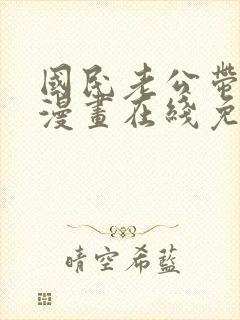 國民老公帶
漫畫在綫免
晴空希藍